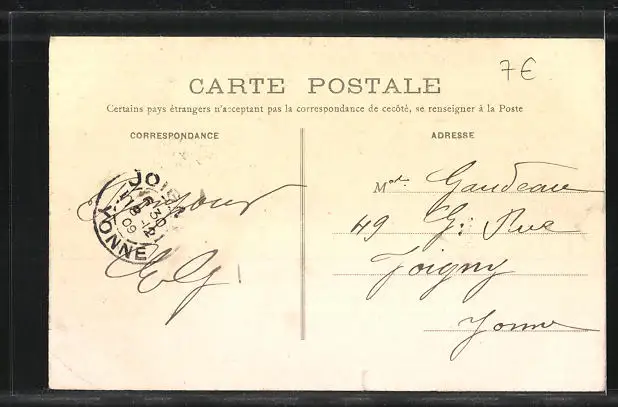 7€
CARTE POSTALE
Certains pays étrangers n'acceptant pas la correspondance de cecôté, se renseigner à la Poste
CORRESPONDANCE
ADRESSE
JOIGNY
6 30
YONNE
Bonjour
Mde Gaudeau
49 Gde Rue
Joigny
Yonne